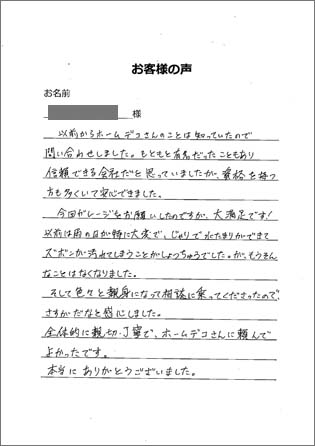 お客様の声
お名前
様
以前からホームデコさんのことは知っていたので
問い合わせしました。もともと有名だったこともあり
信頼できる会社だと思っていましたが、資格を持つ
方も多くいて安心できました。
今回ガレージをお願いしたのですが、大満足です!
以前は雨の日が特に大変で、じゃりで水たまりができて
ズボンが汚れてしまうことがしょっちゅうでした。が、もうそん
なことはなくなりました。
そして色々と親身になって相談に乗ってくださったので、
さすがだなと感心しました。
全体的に親切・丁寧で、ホームデコさんに頼んで
よかったです。
本当に ありがとうございました。